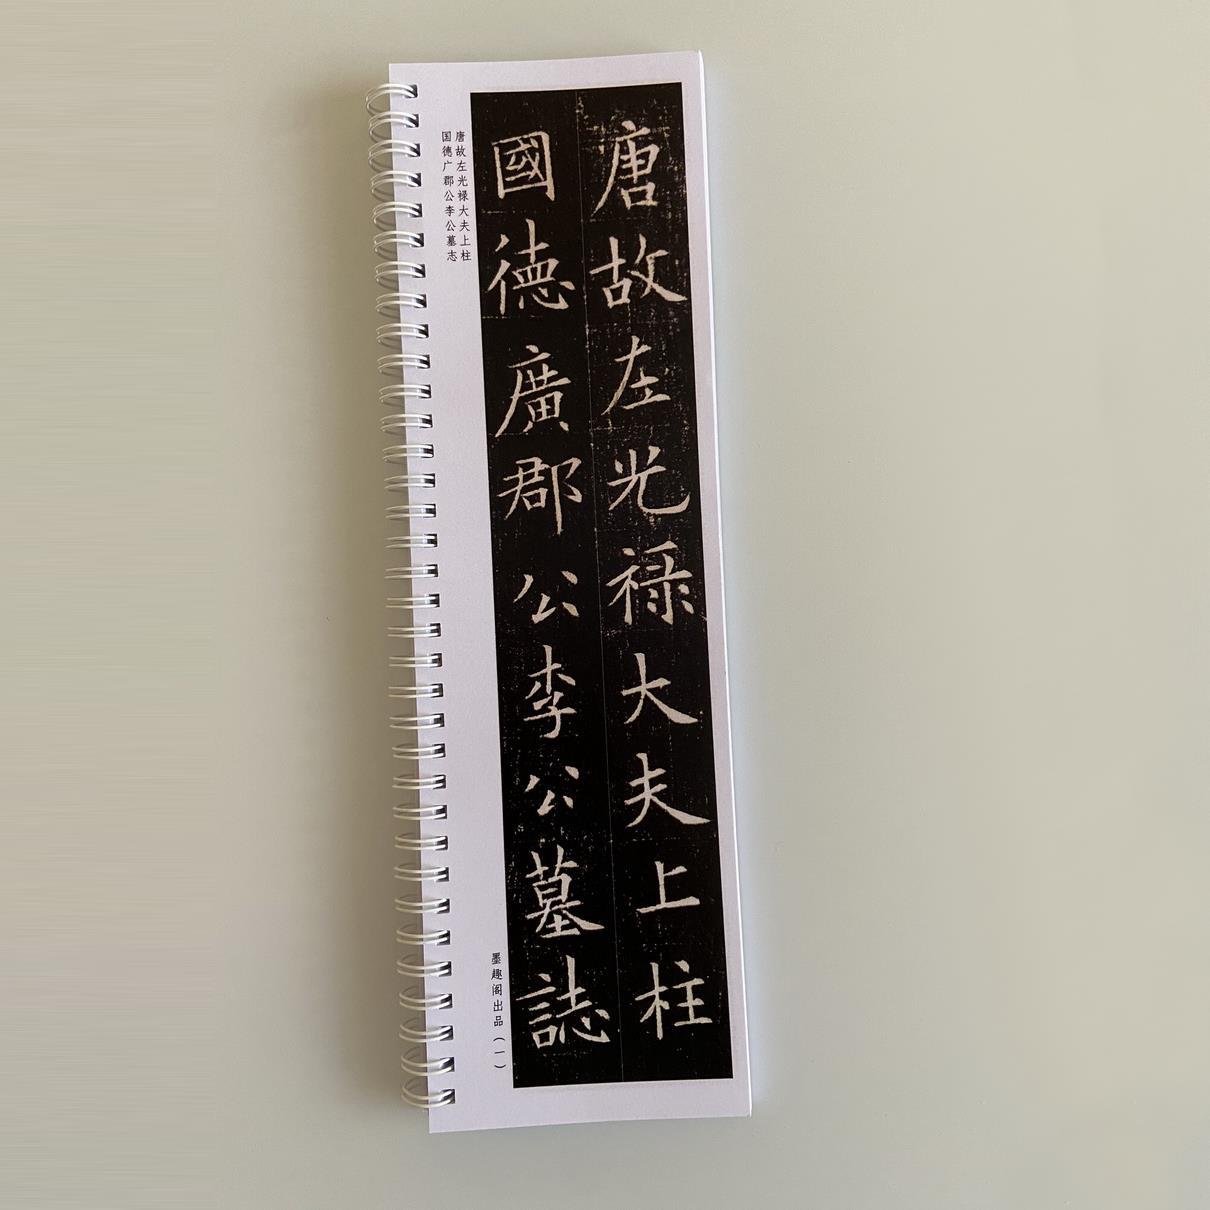 唐故左光禄大夫上柱
國德廣郡公李公墓誌
唐故左光禄大夫上柱
国德广郡公李公墓志
墨趣阁出品（一）